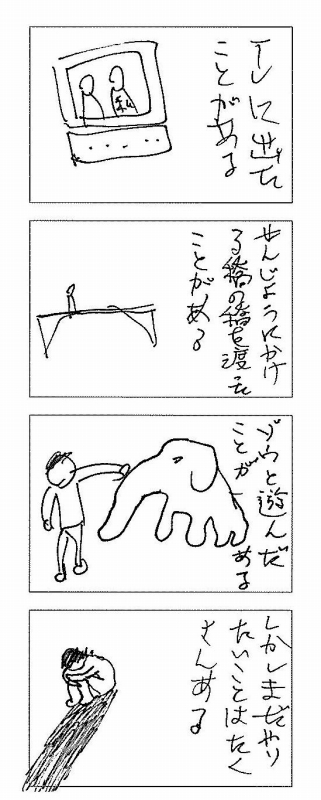 テレに出た
ことがある
私
せんじょうにかけ
る橋の橋を渡った
ことがある
ゾウと遊んだ
ことがある
しかしまだやり
たいことはたく
さんある